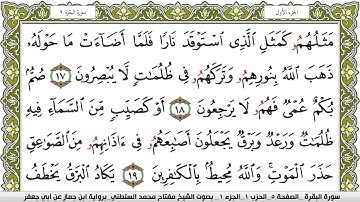 الجزء الأول سورة البقرة
مَثَلُهُمُۥ كَمَثَلِ ٱلَّذِى ٱسْتَوْقَدَ نَارًا فَلَمَّآ أَضَآءَتْ مَا حَوْلَهُۥ
ذَهَبَ ٱللَّهُ بِنُورِهِمُۥ وَتَرَكَهُمُۥ فِى ظُلُمَٰتٍ لَّا يُبْصِرُونَ ١٧ صُمٌّۢ
بُكْمٌ عُمْىٌ فَهُمُۥ لَا يَرْجِعُونَ ١٨ أَوْ كَصَيِّبٍ مِّنَ ٱلسَّمَآءِ فِيهِ
ظُلُمَٰتٌ وَرَعْدٌ وَبَرْقٌ يَجْعَلُونَ أَصَٰبِعَهُمُۥ فِىٓ ءَاذَانِهِمُۥ مِنَ ٱلصَّوَٰعِقِ
حَذَرَ ٱلْمَوْتِ وَٱللَّهُ مُحِيطٌۢ بِٱلْكَٰفِرِينَ ١٩ يَكَادُ ٱلْبَرْقُ يَخْطَفُ
سورة البقرة_ الصفحة _ الحزب ١_ الجزء ١_ بصوت الشيخ مفتاح محمد السلطني_ برواية ابن جماز عن أبي جعفر